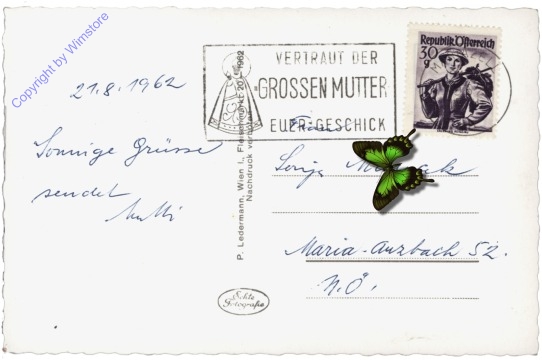 Copyright by Wimstore
21.8.1962
Sonnige Grüsse
sendet
Mutti
VERTRAUT DER
GROSSEN MUTTER
EUER GESCHICK
Republik Österreich
30
g
P. Ledermann, Wien I., Fleischmarkt 20, 1962
Nachdruck verboten
Echte
Fotografie
Frau
Sonja
Maria-Anzbach 52.
N.Ö.